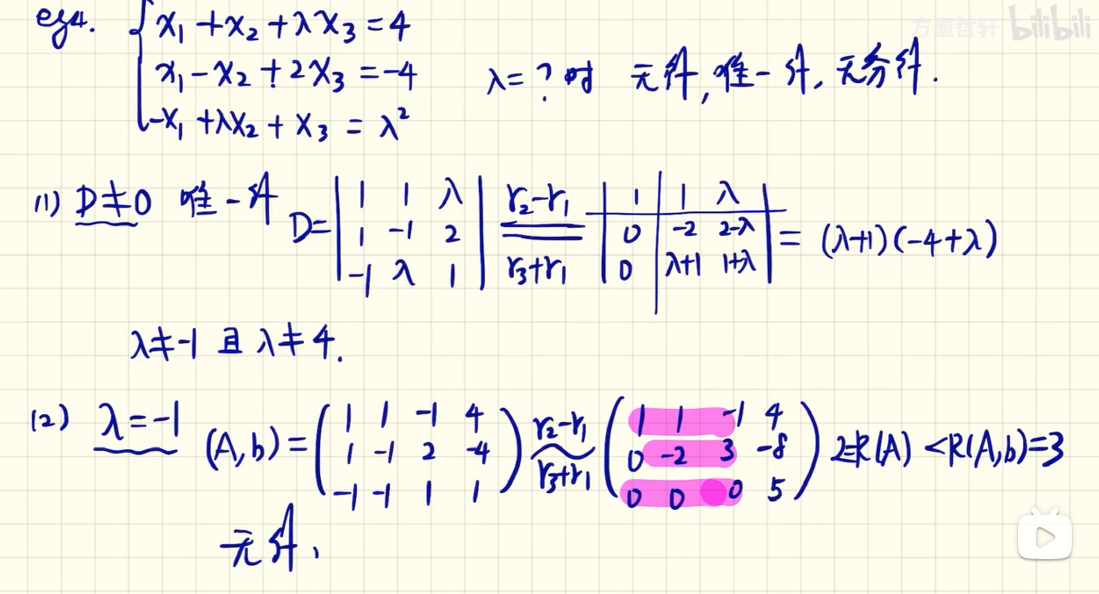 eg4. { x₁ + x₂ + λx₃ = 4
x₁ - x₂ + 2x₃ = -4 λ = ? 时 无解, 唯一解, 无穷解.
-x₁ + λx₂ + x₃ = λ²
方墨哲轩 bilibili
(1) D≠0 唯一解 D = | 1 1 λ ; 1 -1 2 ; -1 λ 1 | r₂-r₁ r₃+r₁ | 1 1 λ ; 0 -2 2-λ ; 0 λ+1 1+λ | = (λ+1)(-4+λ)
λ≠-1 且 λ≠4.
(2) λ=-1 (A,b) = ( 1 1 -1 4 ; 1 -1 2 -4 ; -1 -1 1 1 ) r₂-r₁ ~ r₃+r₁ ( 1 1 -1 4 ; 0 -2 3 -8 ; 0 0 0 5 ) 2=R(A) < R(A,b)=3
无解,